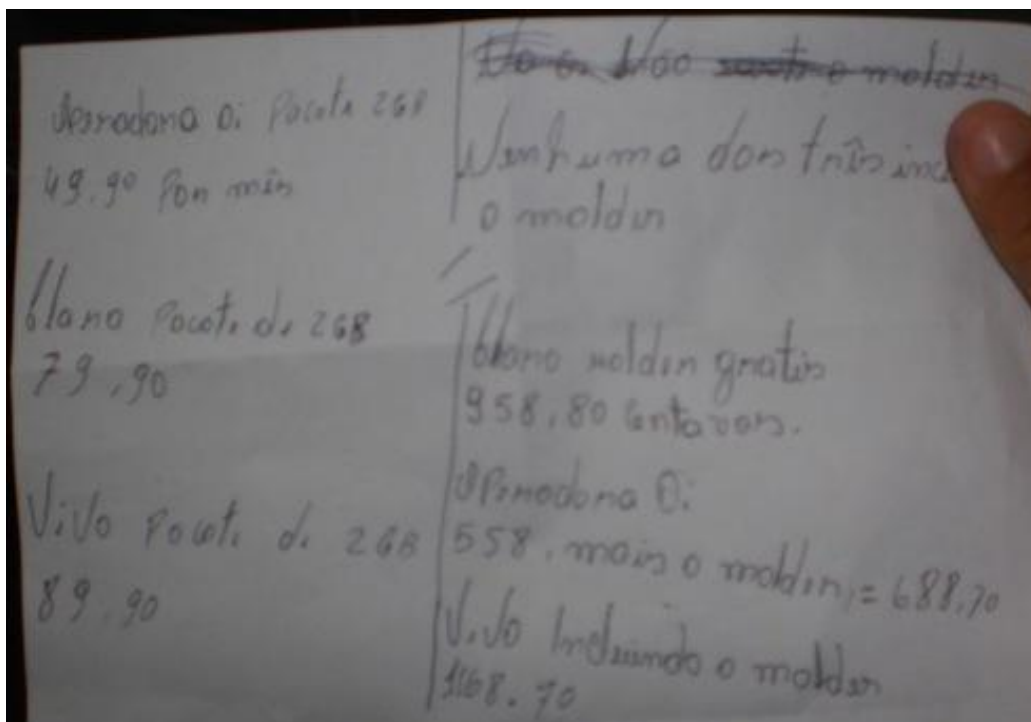 Operadora Oi Pacote 2GB
49.90 Por mês
Claro Pacote de 2GB
79,90
Vivo Pacote de 2GB
89.90
Não o molden
Nenhuma dos três
o molden
Claro molden gratis
958,80 Centavos.
Operadora Oi
558, mais o molden, = 688,70
Vivo Incluindo o molden
1168.70